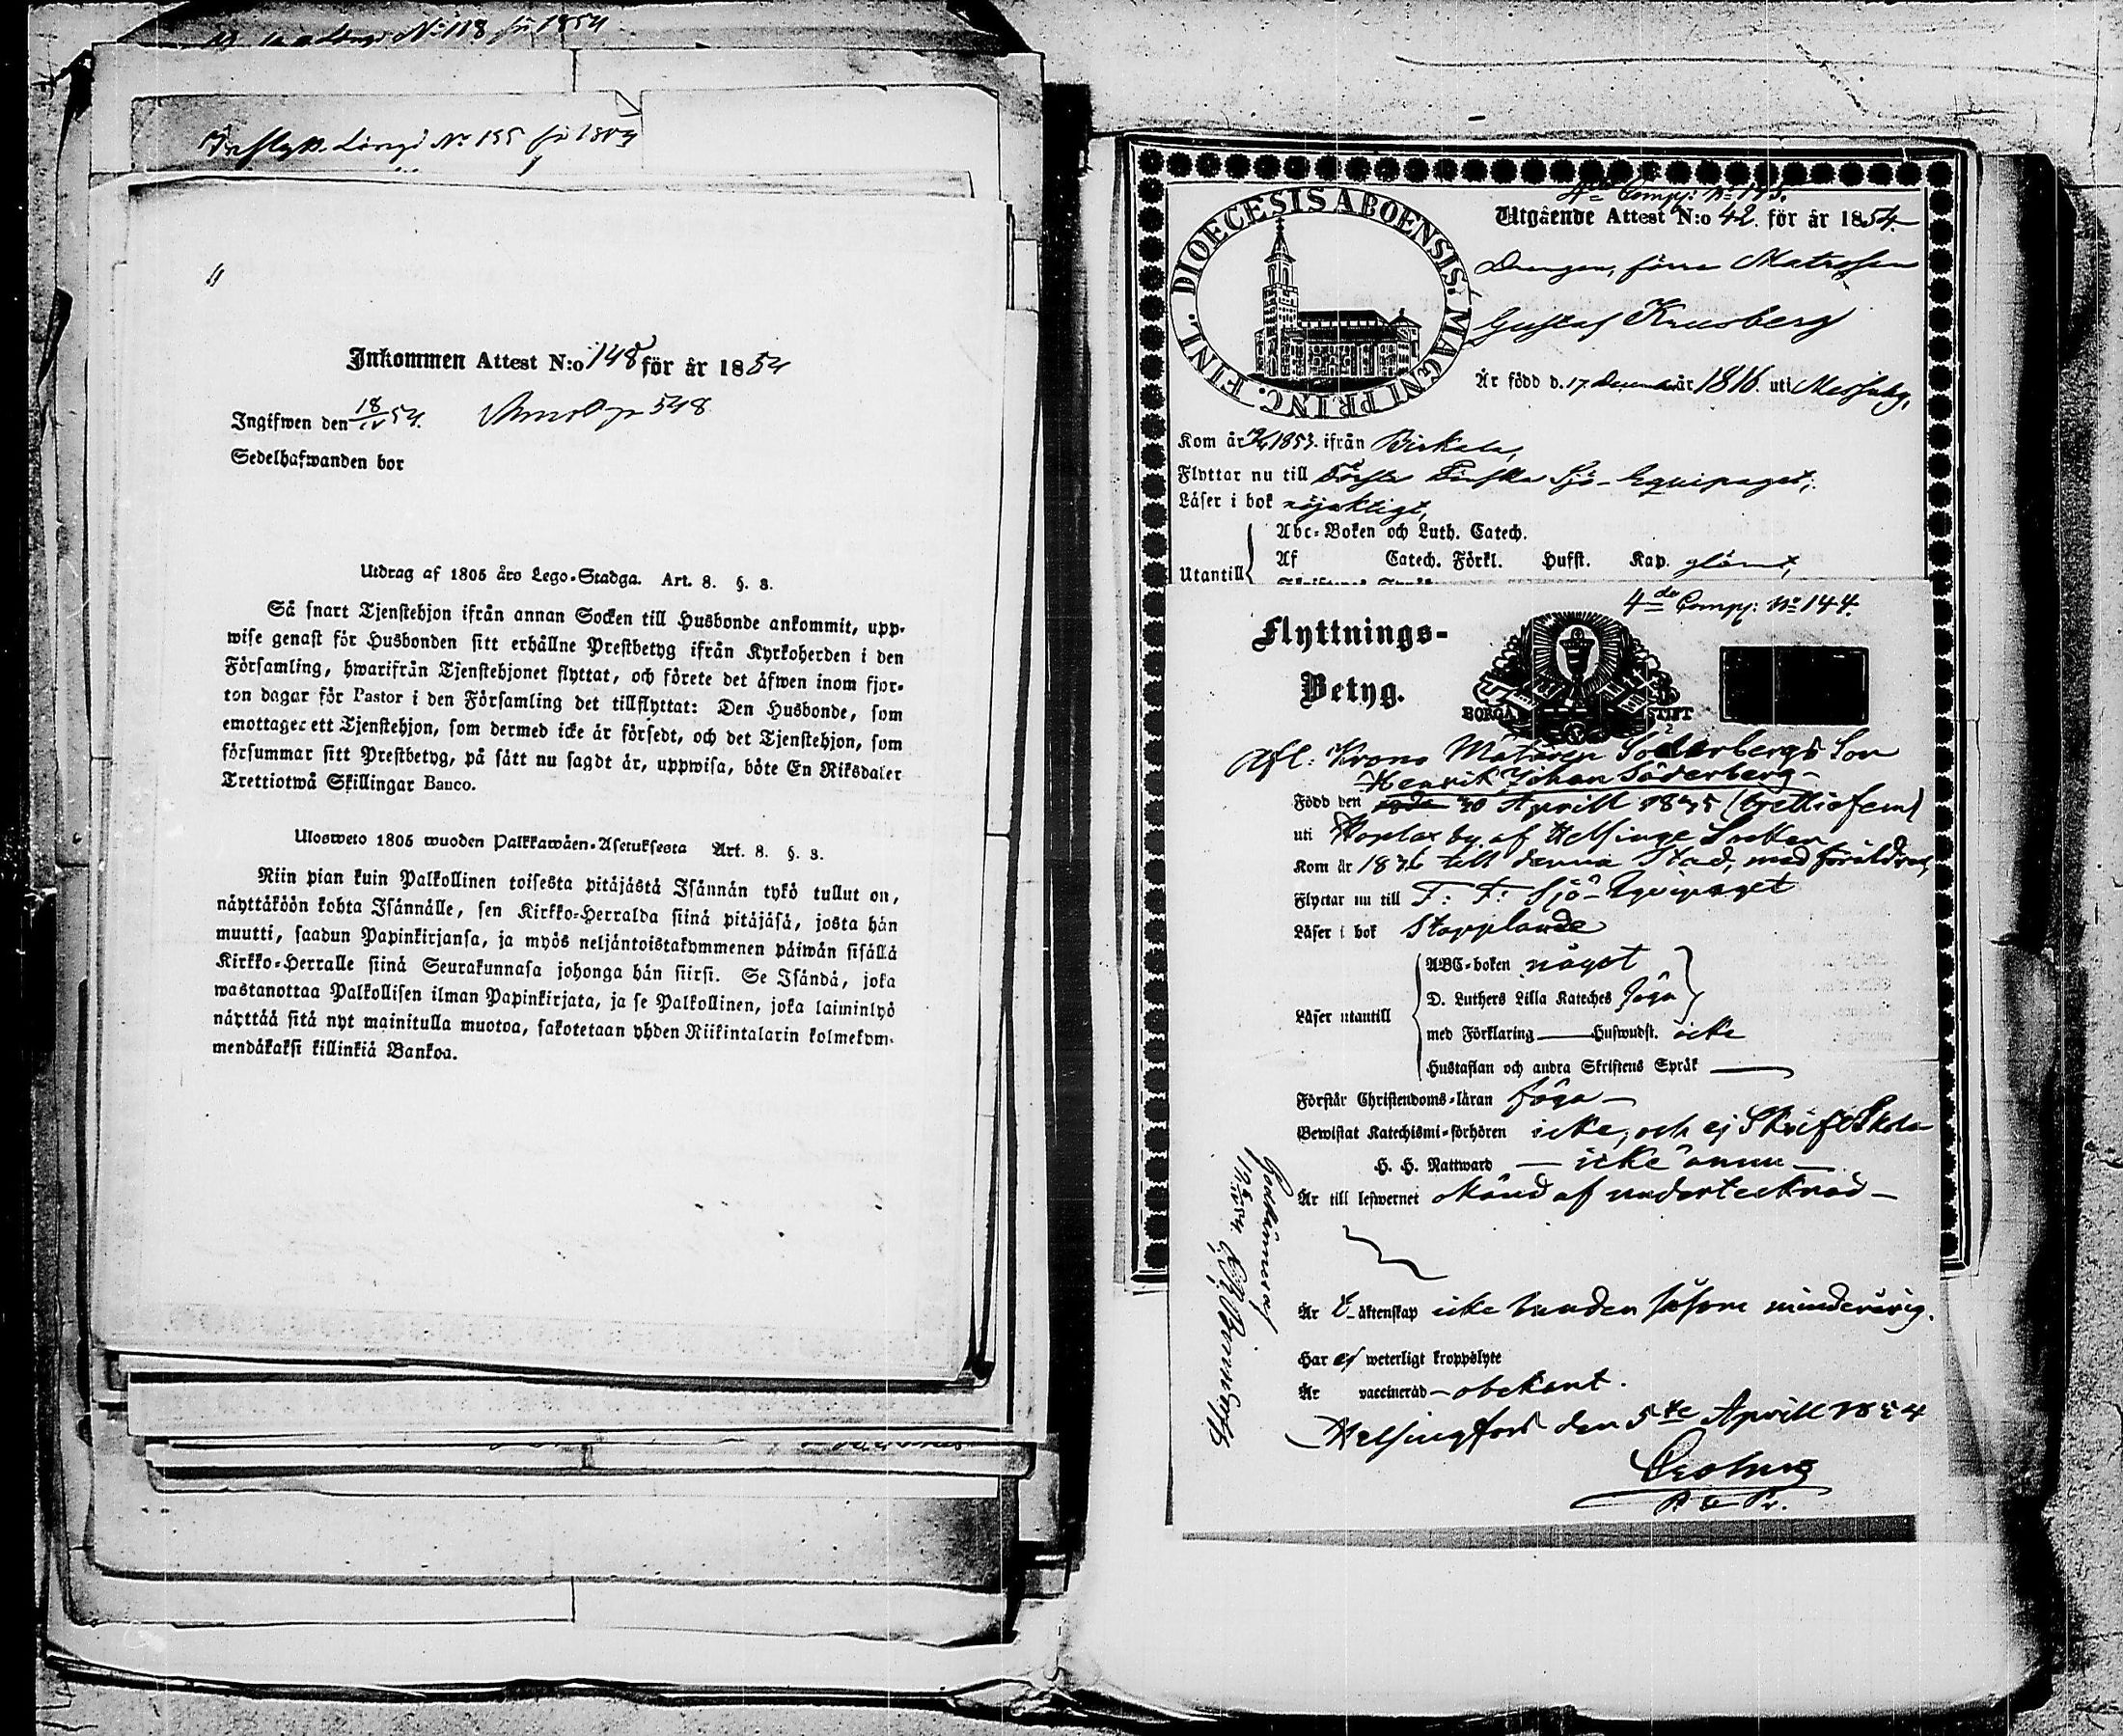 N:o 118 för 1854
Inflytt. Längd No 155 för 1854
Inkommen Attest N:o 148 för år 1854
Ingifwen den 18/IV 54. 548
Sedelhafwanden bor
Utdrag af 1805 års Lego-Stadga. Art. 8. §. 3.
Så snart Tjenstehjon ifrån annan Socken till Husbonde ankommit, upp-
wise genast för Husbonden sitt erhållne Prestbetyg ifrån Kyrkoherden i den
Församling, hwarifrån Tjenstehjonet flyttat, och förete det äfwen inom fjor-
ton dagar för Pastor i den Församling det tillflyttat: Den Husbonde, som
emottager ett Tjenstehjon, som dermed icke är försedt, och det Tjenstehjon, som
försummar sitt Prestbetyg, på sätt nu sagdt är, uppwisa, böte En Riksdaler
Trettiotwå Skillingar Banco.
Ulosweto 1805 wuoden Palkkawäen-Asetuksesta Art. 8. §. 3.
Niin pian kuin Palkollinen toisesta pitäjästä Isännän tykö tullut on,
näyttäköön kohta Isännälle, sen Kirkko-Herralda siinä pitäjäsä, josta hän
muutti, saadun Papinkirjansa, ja myös neljäntoistakymmenen päiwän sisällä
Kirkko-Herralle siinä Seurakunnasa johonga hän siirsi. Se Isändä, joka
wastanottaa Palkollisen ilman Papinkirjata, ja se Palkollinen, joka laiminlyö
näyttää sitä nyt mainitulla muotoa, sakotetaan yhden Riikintalarin kolmekym-
mendäkaksi killinkiä Bankoa.
4de Comp: No 145.
DIOECESIS ABOENSIS. MAGNI PRINC. FINL.
Utgående Attest N:o 42. för år 1854.
Drengen, förre Matrosen
Gustaf Krusberg
Är född d. 17 December år 1816. uti Messuby,
Kom år 1853. ifrån Birkala,
Flyttar nu till Första Finska Sjö-Equipaget,
Läser i bok nöjaktigt,
Utantill Abc-Boken och Luth. Catech.
Af Catech. Förkl. Hufst. Kap. glömt,
4de Comp: No 144.
Flyttnings-
Betyg.
BORGÅ STIFT
Afl: Krono Matrosen Söderbergs Son
Henrik Johan Söderberg
Född den 30 Aprill 1835 (trettiofem)
uti Hoplax by af Helsinge Socken
Kom år 1836 till denna Stad, med föräldrar,
Flyttar nu till F: F: Sjö-Equipaget
Läser i bok Stapplande
Läser utantill
ABC-boken något
D. Luthers Lilla Kateches föga
med Förklaring — Huswudst. icke
Hustaflan och andra Skriftens Språk —
Förstår Christendoms-läran föga —
Bewistat Katechismi-förhören icke, och ej Skriftskola
H. H. Nattward — icke ännu —
Är till lefwernet okänd af undertecknad —
Är t. äktenskap icke bunden såsom minderårig.
Har ej weterligt kroppslyte
Är vaccinerad — obekant.
Helsingfors den 5te Aprill 1854